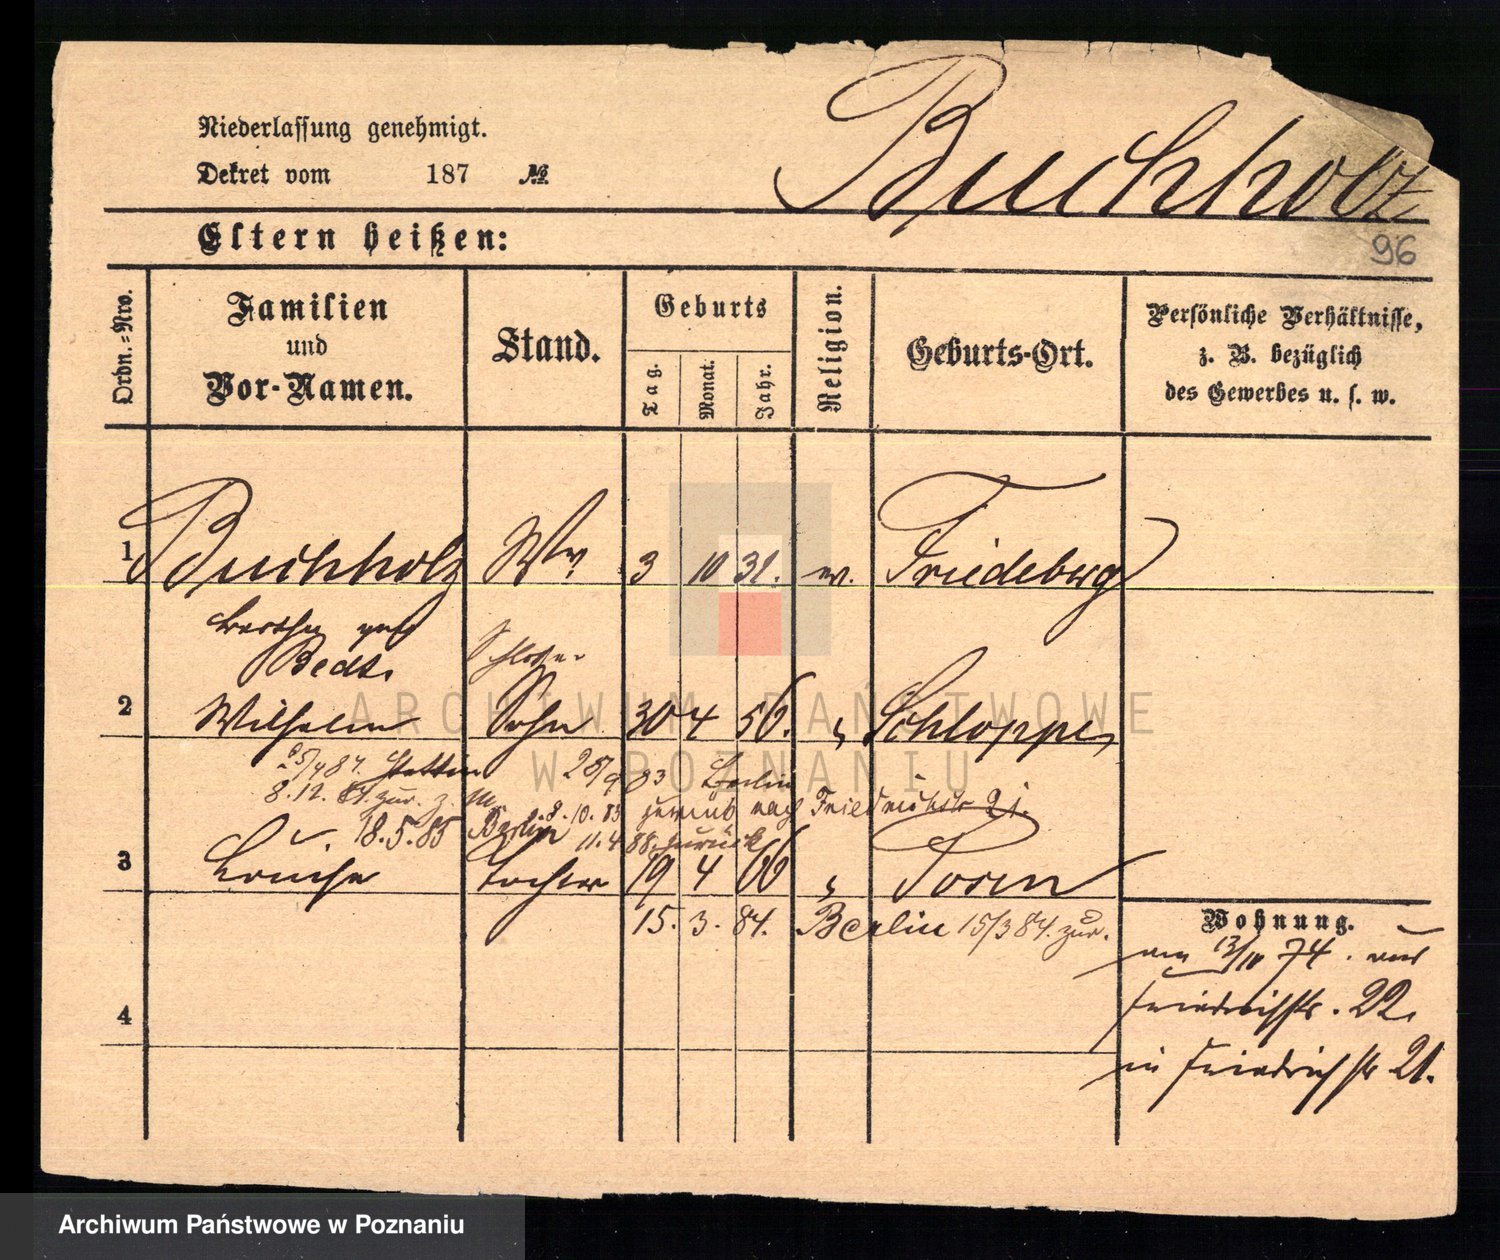 Buchholz
Niederlassung genehmigt.
Dekret vom 187 №
96
Eltern heißen:
Ordn.-Nro.
Familien
und
Vor-Namen.
Stand.
Geburts
Tag.
Monat.
Jahr.
Religion.
Geburts-Ort.
Persönliche Verhältnisse,
z. B. bezüglich
des Gewerbes u. s. w.
1 Buchholz Ww 3 10 31. ev. Friedeberg
Bertha geb
Schlosser
2 Wilhelm Sohn 30 4 56. " Schloppe
25/4 87. Stettin 28/9 83 Berlin
8.12. 87. zur. 8.10.83 zurück nach Friedrichstr 21.
18.5.85 Berlin 11.4 88. zurück
3 Louise Tochter 19 4 66 " Posen
15. 3. 84. Berlin 15/3 84. zur.
4
Wohnung.
am 13/10 74. aus
Friedrichstr. 22.
in Friedrichstr 21.
ARCHIWUM PAŃSTWOWE
W POZNANIU
Archiwum Państwowe w Poznaniu